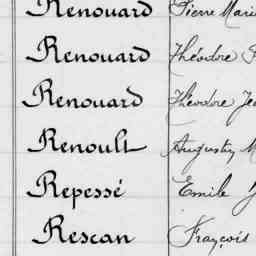 Renouard Pierre Mari
Renouard Théodore
Renouard Théodore Je
Renoult Augustin M
Repessé Emile
Rescan François